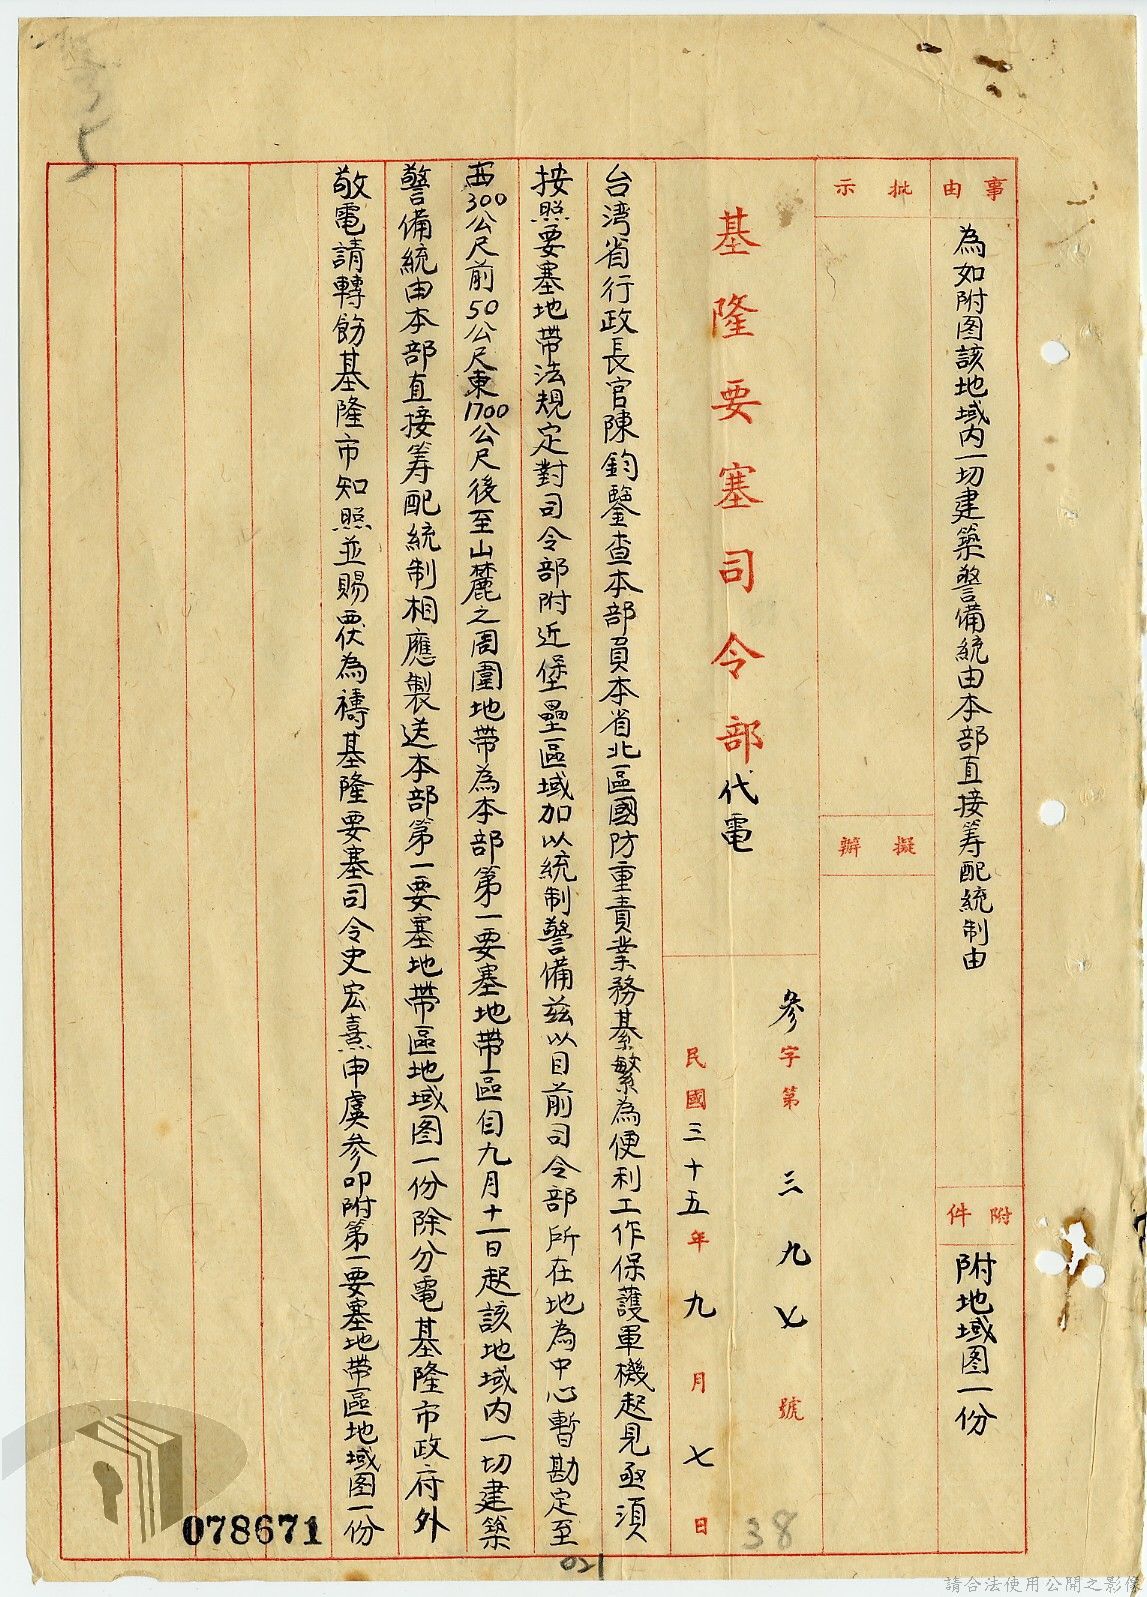 事由
為如附图該地域內一切建築警備統由本部直接筹配統制由
附件
附地域图一份
批示
擬辦
基隆要塞司令部代電
參字第三九七號
民國三十五年九月七日
台湾省行政長官陳鈞鑒查本部負本省北區國防重責業務綦繁為便利工作保護軍機起見亟須
按照要塞地帶法規定對司令部附近堡壘區域加以統制警備茲以目前司令部所在地為中心暫勘定至
西300公尺前50公尺東1700公尺後至山麓之周圍地帶為本部第一要塞地帶區自九月十一日起該地域內一切建築
警備統由本部直接筹配統制相應製送本部第一要塞地帶區地域图一份除分電基隆市政府外
敬電請轉飭基隆市知照並賜覆為禱基隆要塞司令史宏熹申虞參印附第一要塞地帶區地域图一份
5
38
021
078671
請合法使用公開之影像